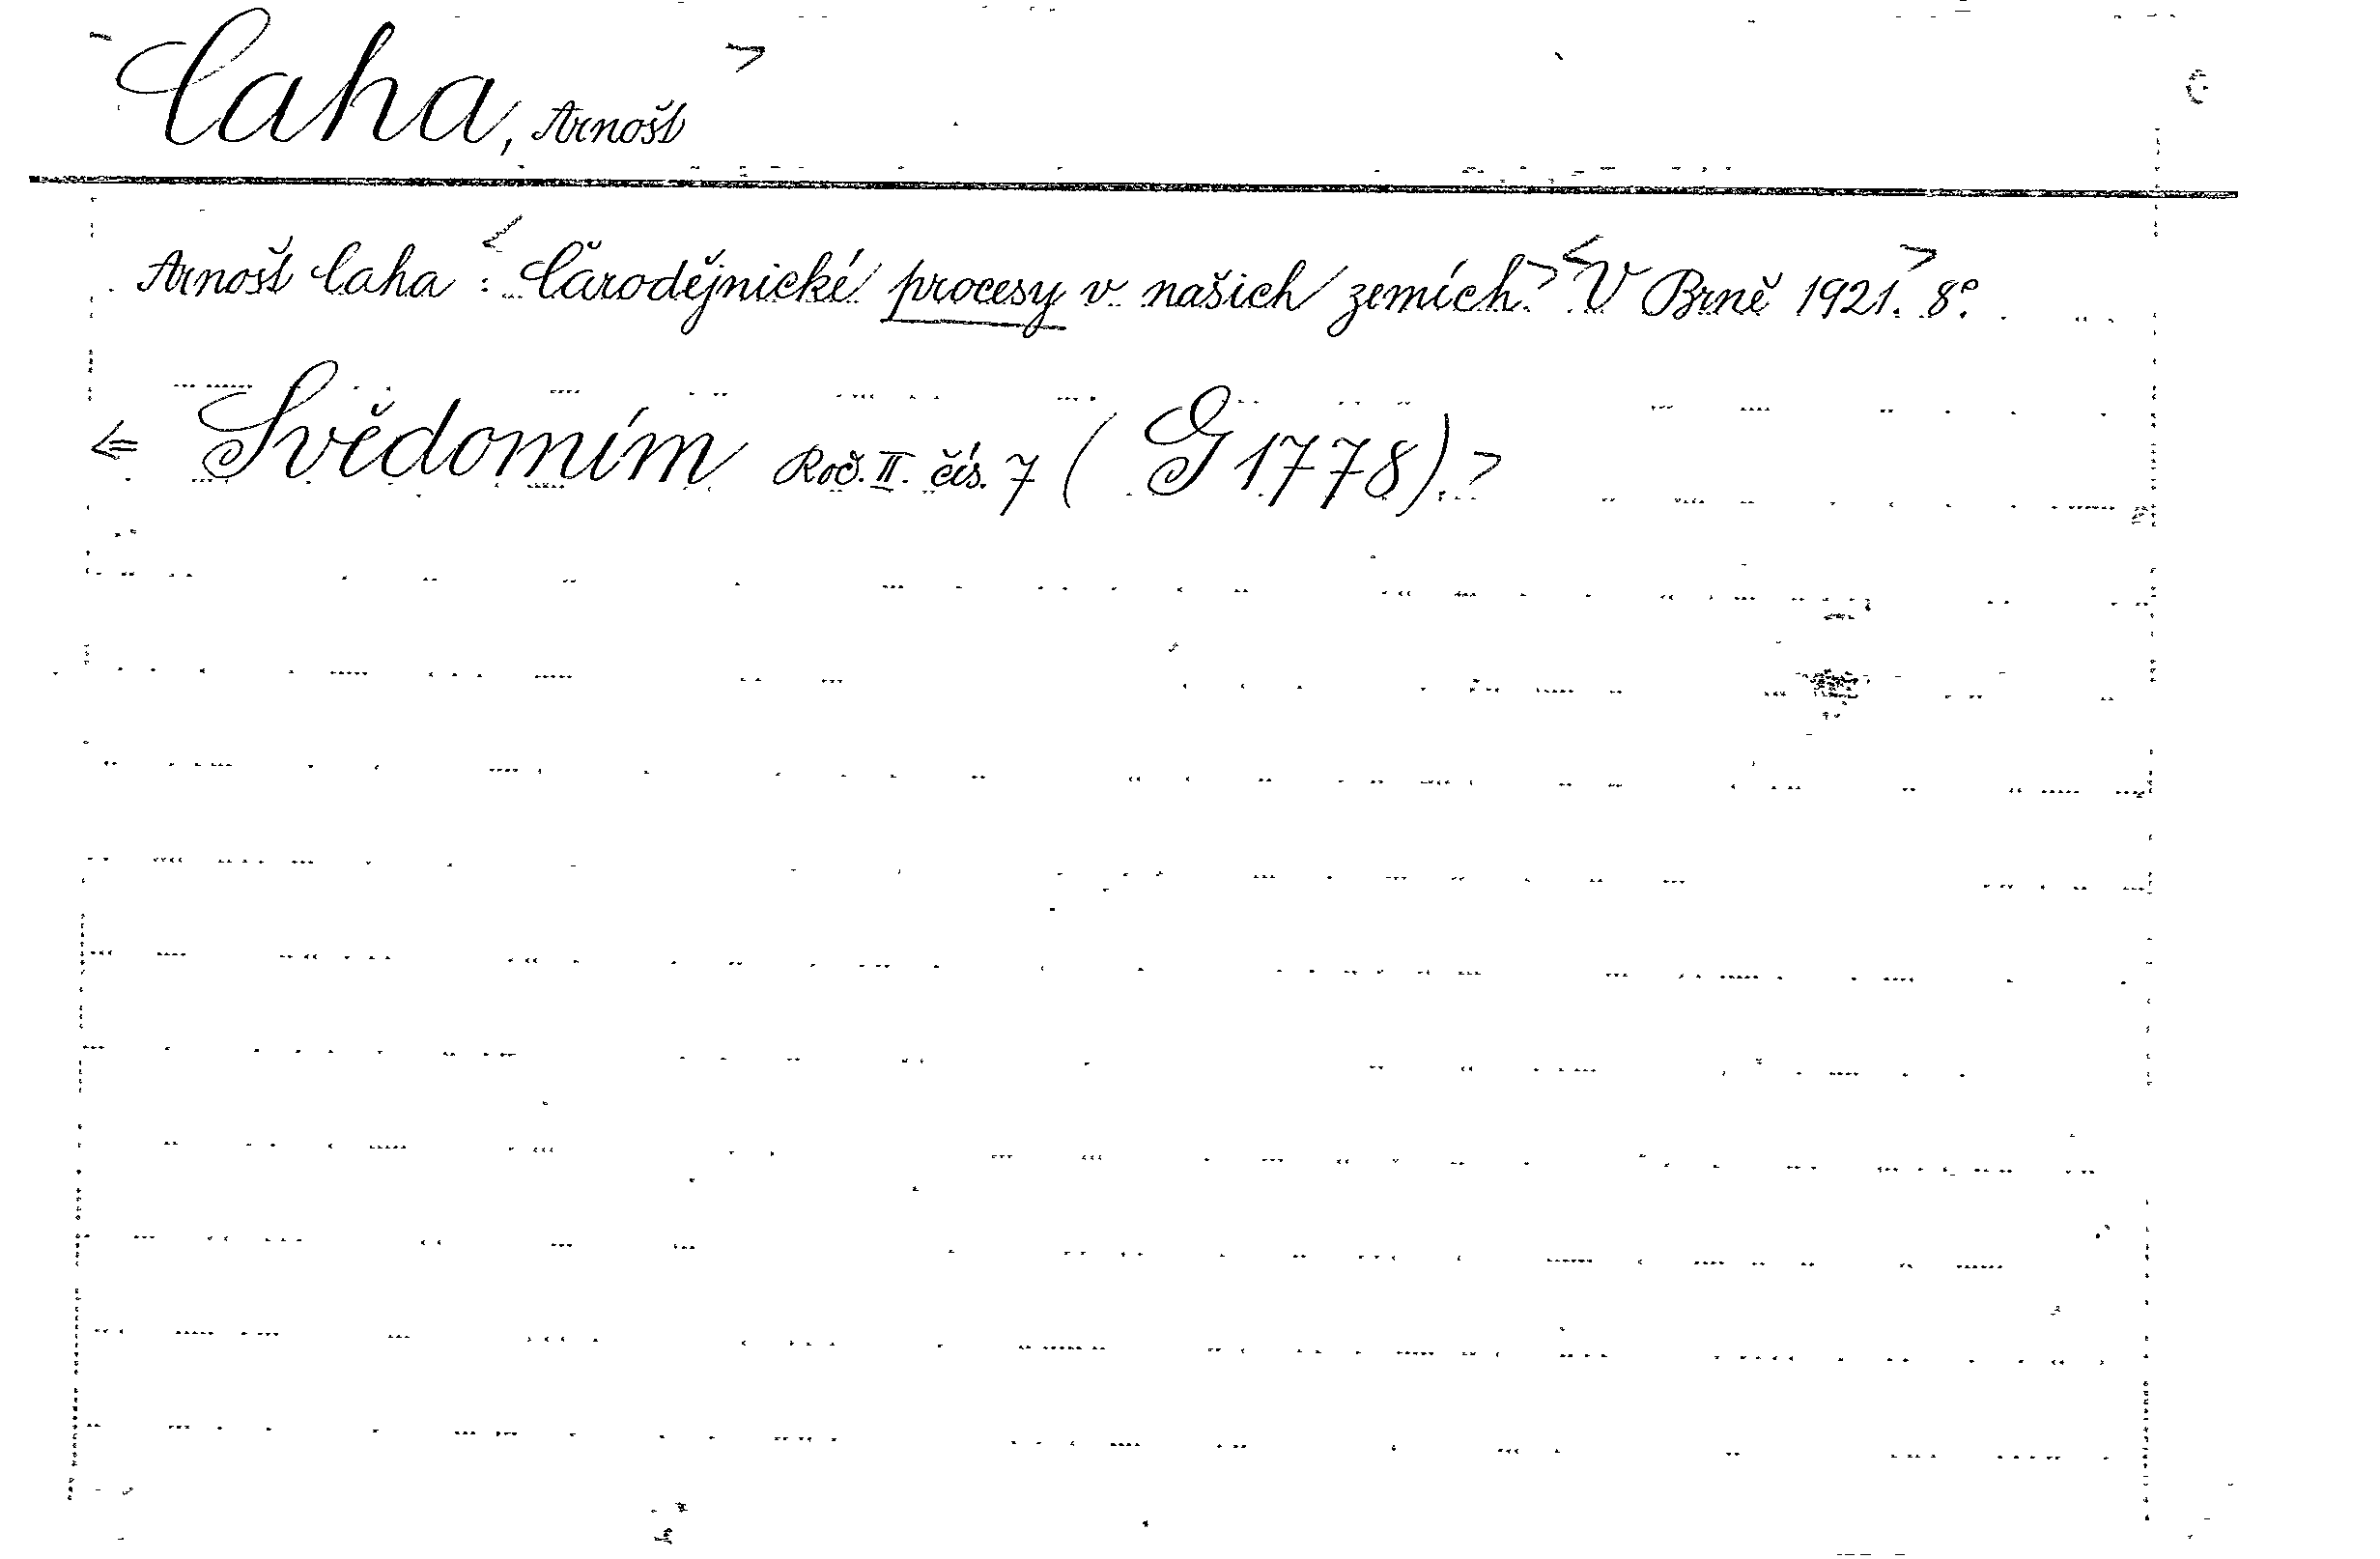 Caha, Arnošt
Arnošt Caha: Čarodějnické procesy v našich zemích. V Brně 1921. 8°.
Svědomím Roč. II. čís. 7 (G 1778).